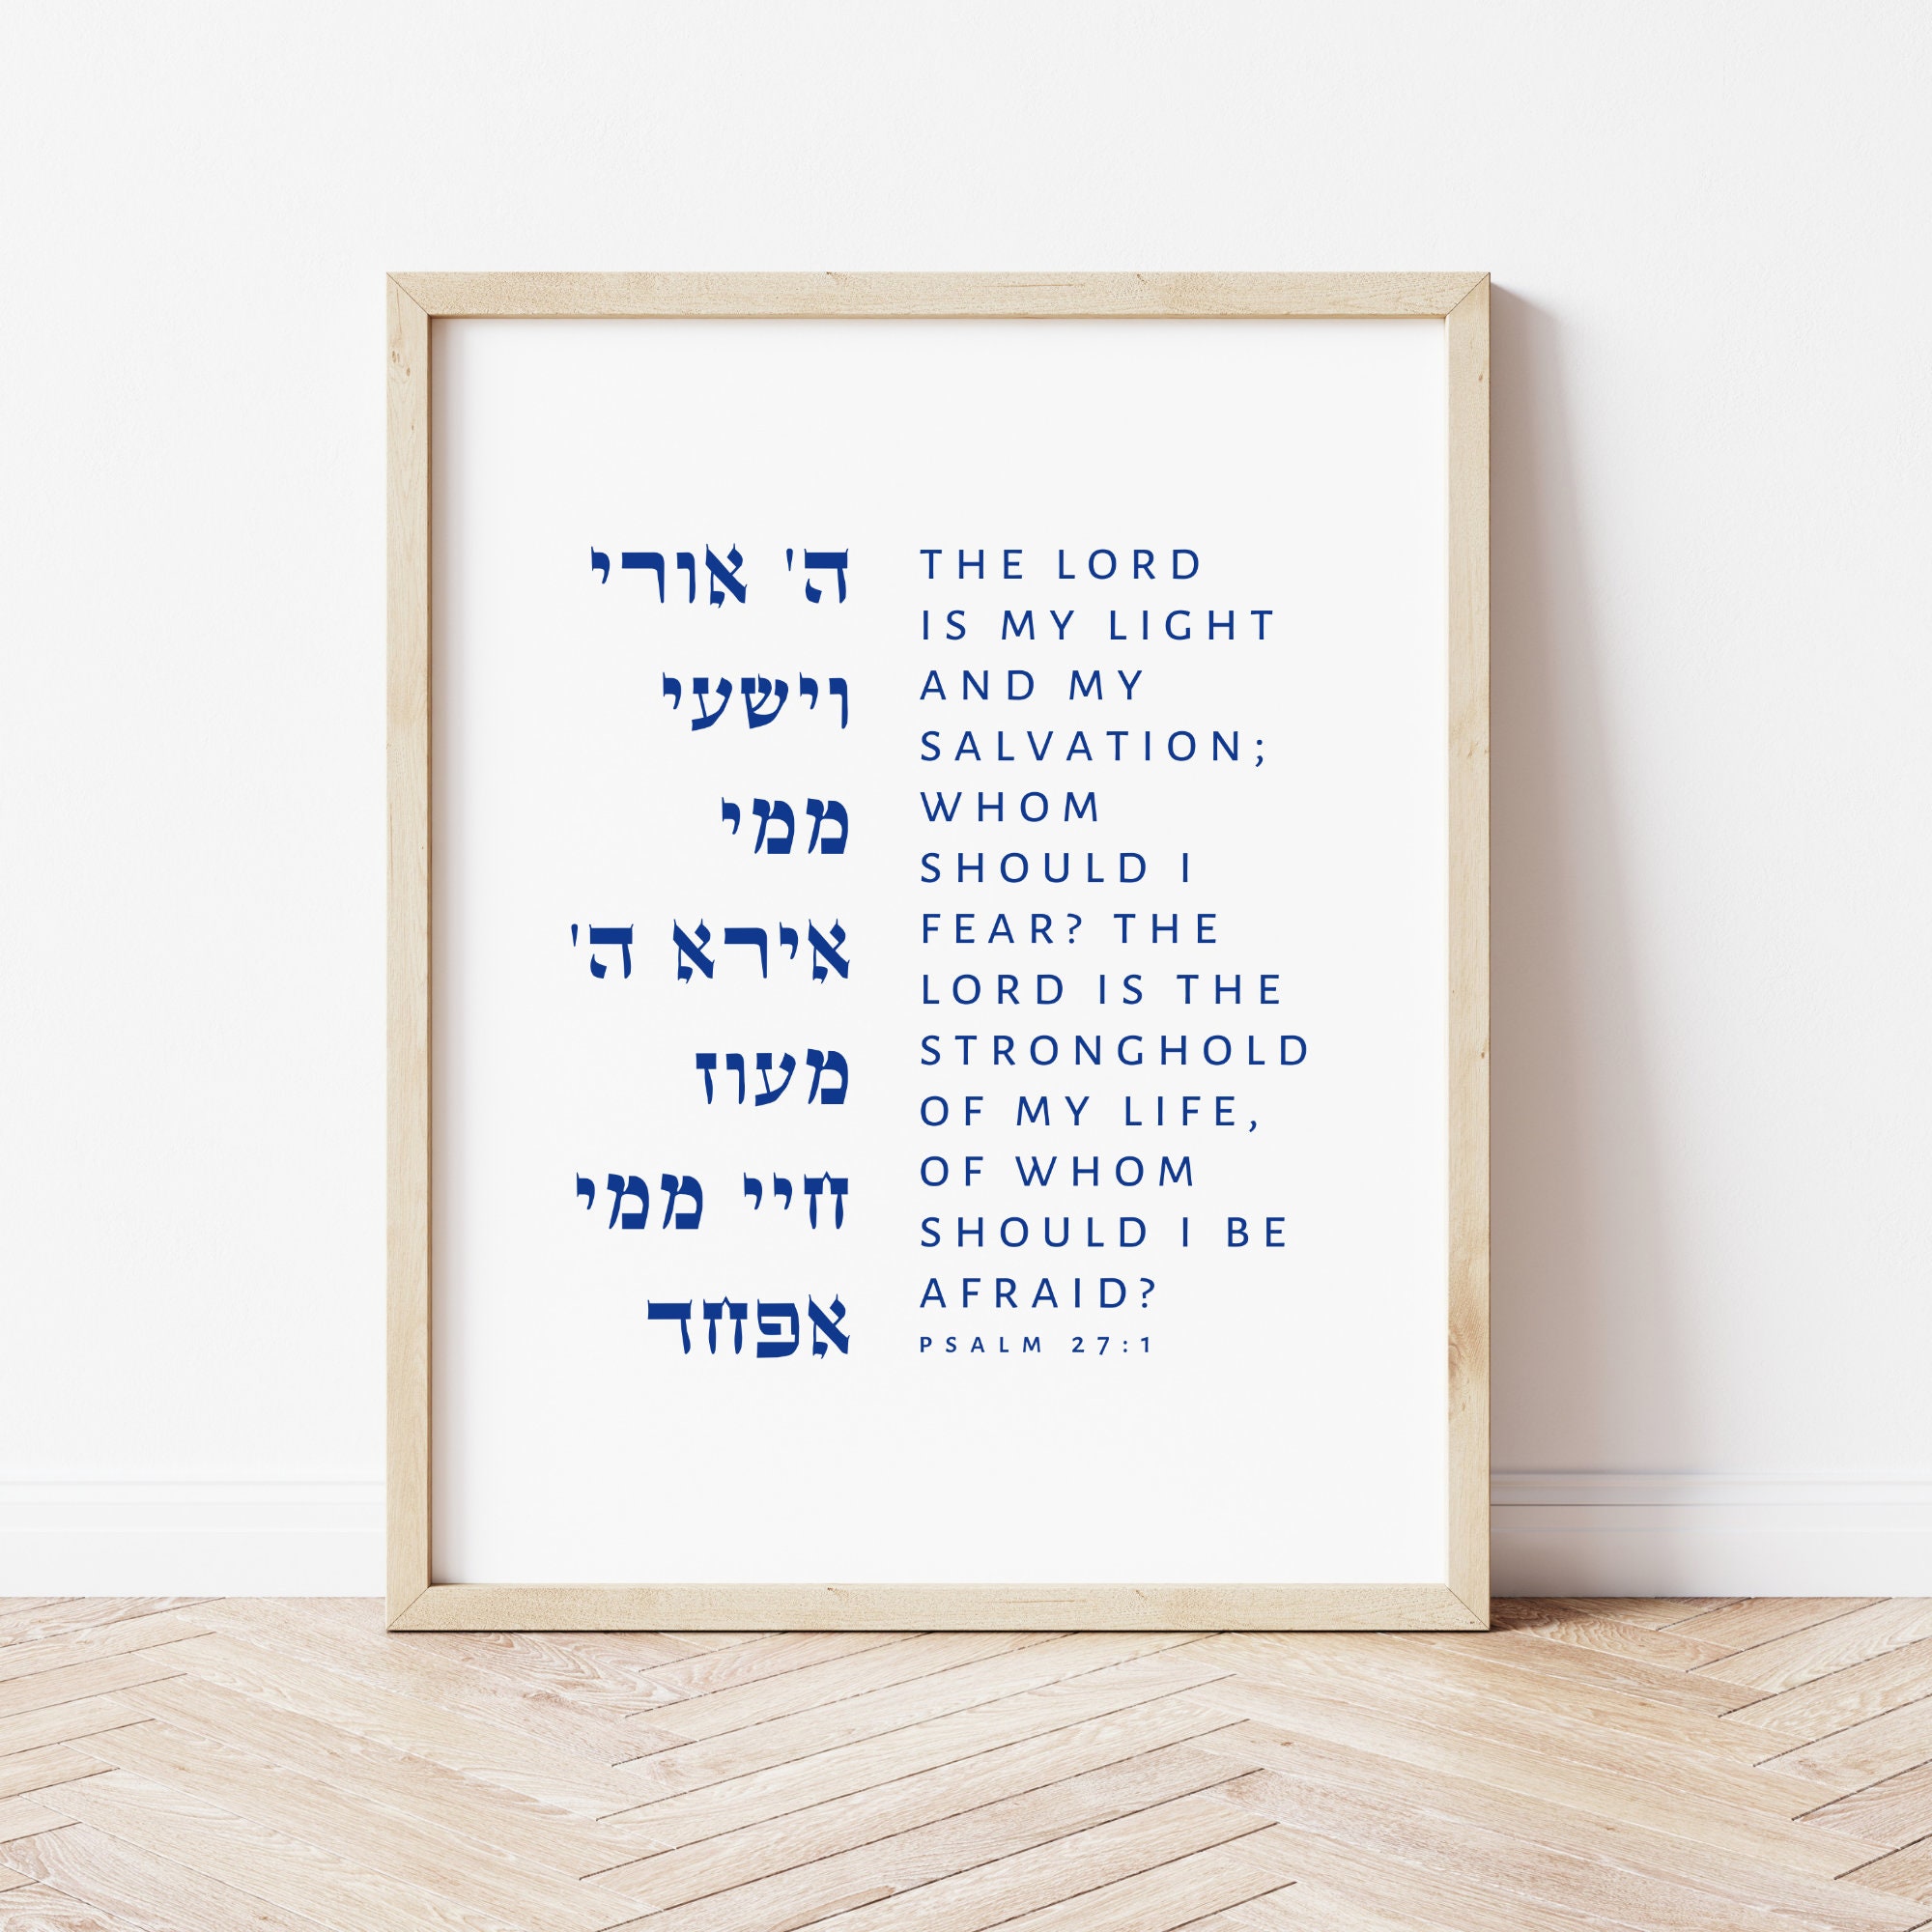 ה' אורי
וישעי
ממי
אירא ה'
מעוז
חיי ממי
אפחד
THE LORD
IS MY LIGHT
AND MY
SALVATION;
WHOM
SHOULD I
FEAR? THE
LORD IS THE
STRONGHOLD
OF MY LIFE,
OF WHOM
SHOULD I BE
AFRAID?
PSALM 27:1